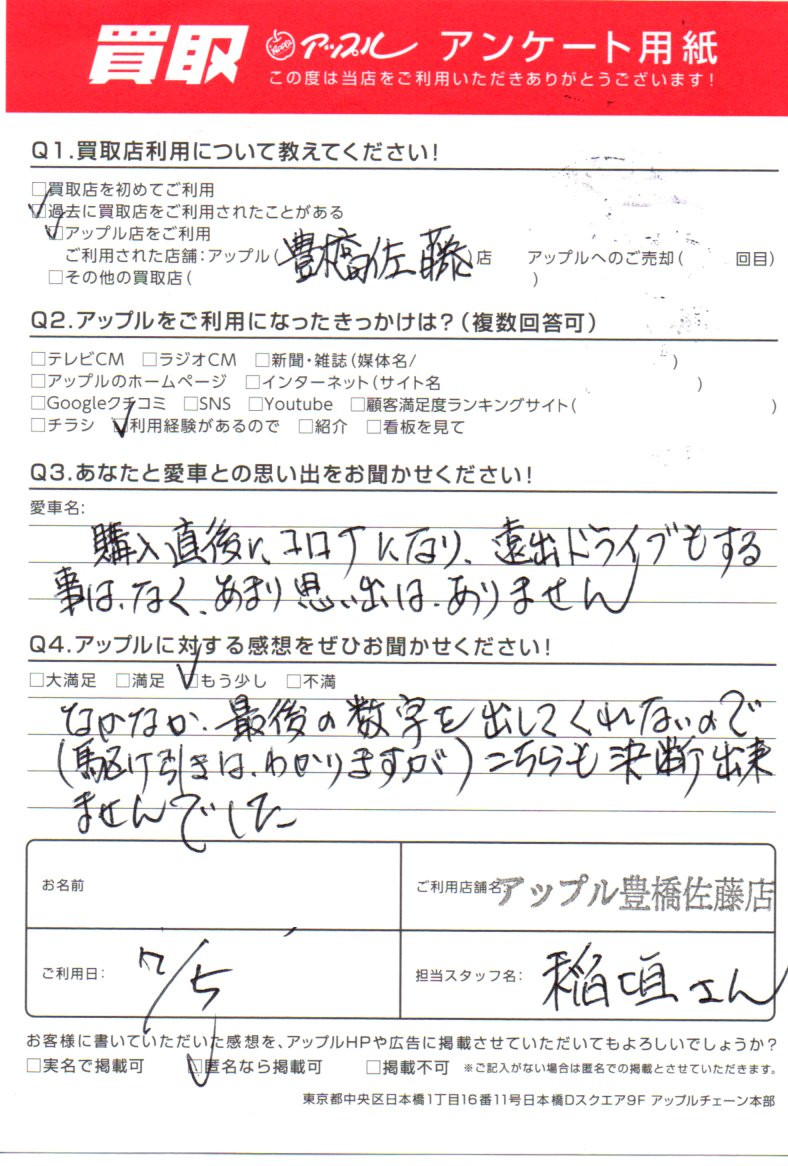 買取 アップル アンケート用紙
この度は当店をご利用いただきありがとうございます!
Q1.買取店利用について教えてください!
□買取店を初めてご利用
☑過去に買取店をご利用されたことがある
☑アップル店をご利用
ご利用された店舗:アップル(豊橋佐藤)店 アップルへのご売却( 回目)
□その他の買取店( )
Q2.アップルをご利用になったきっかけは?(複数回答可)
□テレビCM □ラジオCM □新聞・雑誌(媒体名/ )
□アップルのホームページ □インターネット(サイト名 )
□Googleクチコミ □SNS □Youtube □顧客満足度ランキングサイト( )
□チラシ ☑利用経験があるので □紹介 □看板を見て
Q3.あなたと愛車との思い出をお聞かせください!
愛車名:
購入直後にコロナになり、遠出ドライブもする
事は、なく、あまり思い出は、ありません
Q4.アップルに対する感想をぜひお聞かせください!
□大満足 □満足 ☑もう少し □不満
なかなか、最後の数字を出してくれないので
(駆け引きは、わかりますが)こちらも決断出来
ませんでした
お名前
ご利用店舗名:アップル豊橋佐藤店
ご利用日: 7/5
担当スタッフ名: 稲垣さん
お客様に書いていただいた感想を、アップルHPや広告に掲載させていただいてもよろしいでしょうか?
□実名で掲載可 ☑匿名なら掲載可 □掲載不可 ※ご記入がない場合は匿名での掲載とさせていただきます。
東京都中央区日本橋1丁目16番11号日本橋Dスクエア9F アップルチェーン本部